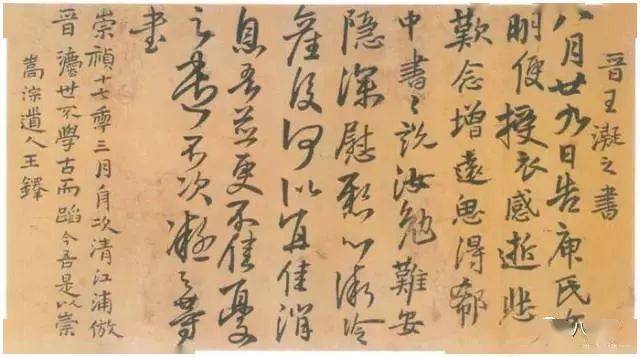 晉王凝之書
八月廿九日告庾氏女
明便授衣感逝悲
歎念增遠思得郗
中書〻說汝勉難安
隱深慰懸心漸冷
產後何似宜佳消
息吾並更不佳憂
之遣書不次凝之等
書
崇禎十七年三月舟次清江浦倣
晉世不學古而蹈今吾是以崇
嵩淙道人王鐸